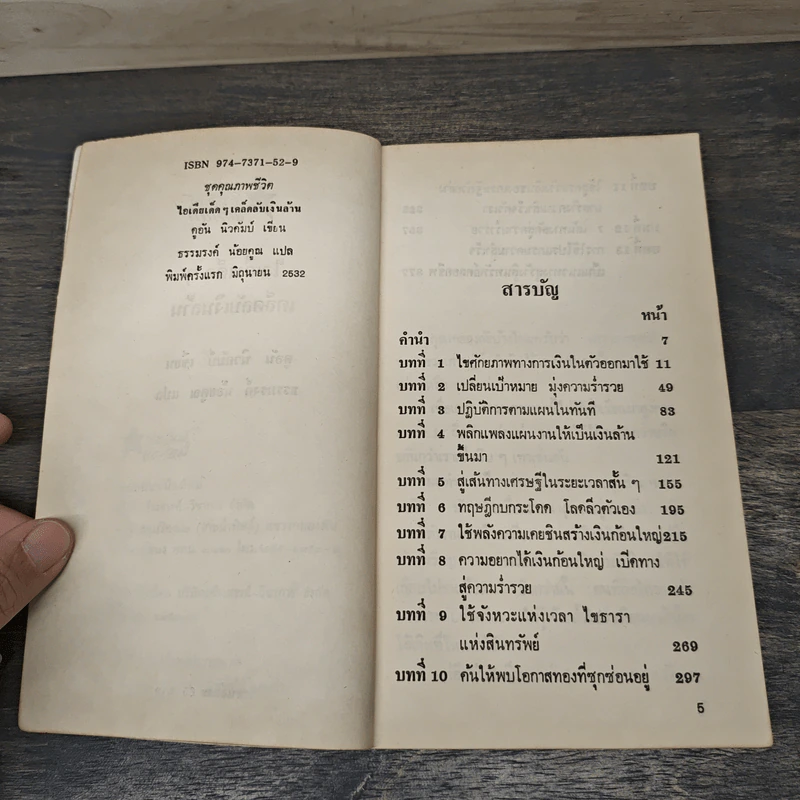 ISBN 974-7371-52-9
ชุดคุณภาพชีวิต
ไอเดียเด็ด ๆ เคล็ดลับเงินล้าน
ดูอัน นิวคัมบ์ เขียน
ธรรมรงค์ น้อยคูณ แปล
พิมพ์ครั้งแรก มิถุนายน 2532
สารบัญ
หน้า
คำนำ 7
บทที่ 1 ไขศักยภาพทางการเงินในตัวออกมาใช้ 11
บทที่ 2 เปลี่ยนเป้าหมาย มุ่งความร่ำรวย 49
บทที่ 3 ปฏิบัติการตามแผนในทันที 83
บทที่ 4 พลิกแพลงแผนงานให้เป็นเงินล้าน
ขึ้นมา 121
บทที่ 5 สู่เส้นทางเศรษฐีในระยะเวลาสั้น ๆ 155
บทที่ 6 ทฤษฎีกบกระโดด โลดลิ่วตัวเอง 195
บทที่ 7 ใช้พลังความเคยชินสร้างเงินก้อนใหญ่ 215
บทที่ 8 ความอยากได้เงินก้อนใหญ่ เบิดทาง
สู่ความร่ำรวย 245
บทที่ 9 ใช้จังหวะแห่งเวลา ไขธารา
แห่งสินทรัพย์ 269
บทที่ 10 ค้นให้พบโอกาสทองที่ซุกซ่อนอยู่ 297
5